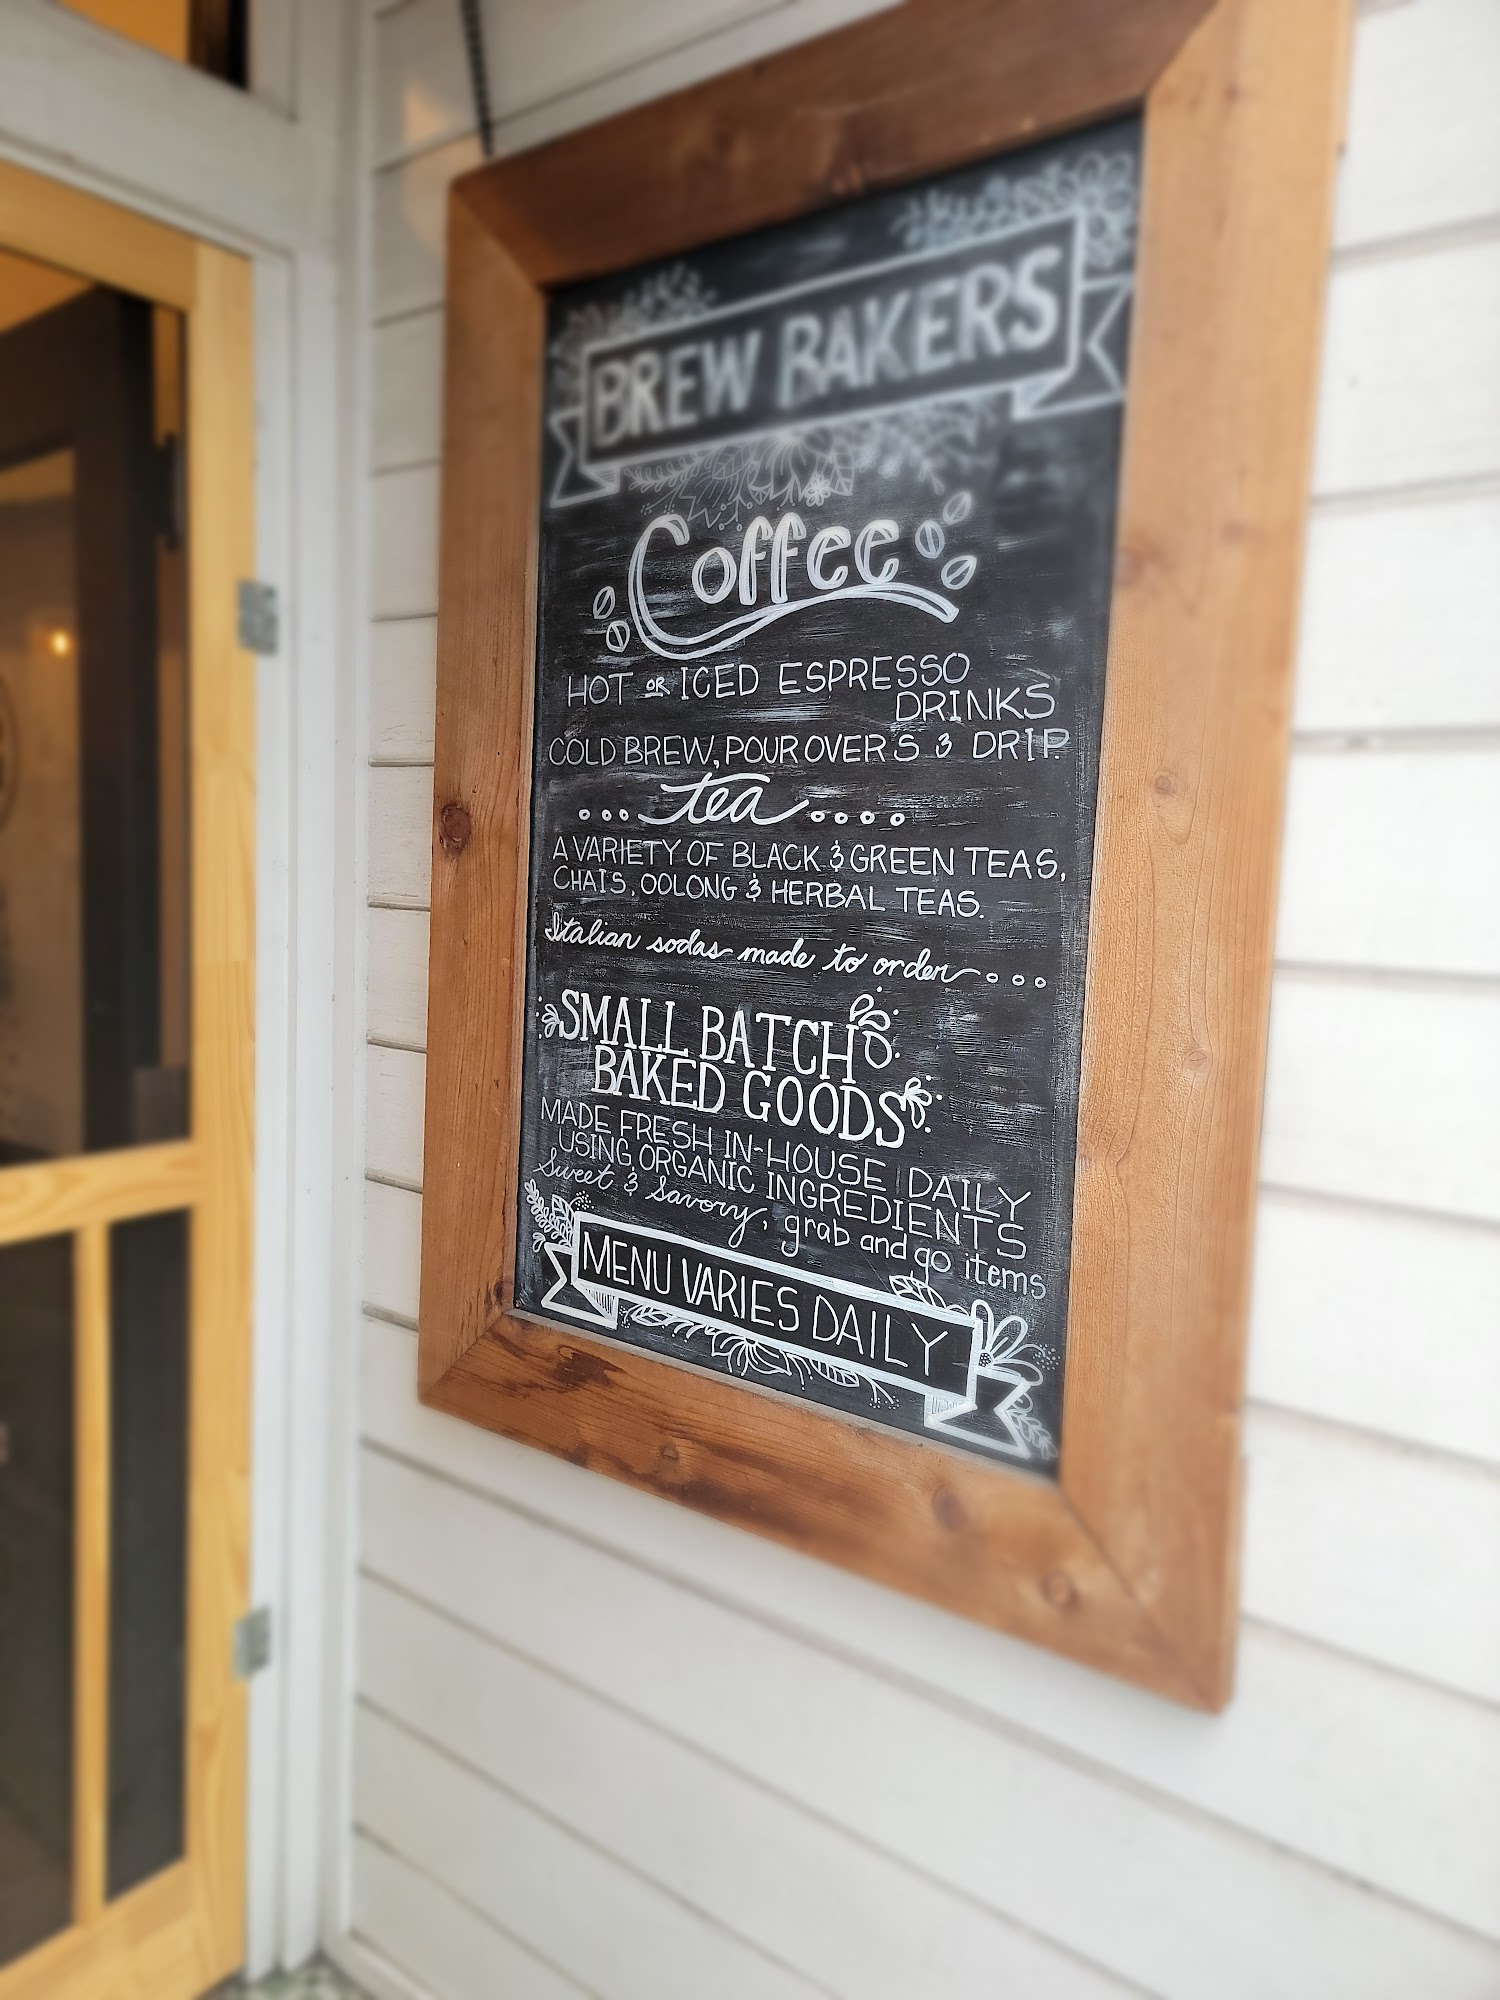 BREW BAKERS
Coffee
HOT OR ICED ESPRESSO
DRINKS
COLD BREW, POUR OVERS & DRIP
... tea ....
A VARIETY OF BLACK & GREEN TEAS,
CHAIS, OOLONG & HERBAL TEAS.
Italian sodas made to order ...
SMALL BATCH
BAKED GOODS
MADE FRESH IN-HOUSE DAILY
USING ORGANIC INGREDIENTS
Sweet & Savory, grab and go items
MENU VARIES DAILY